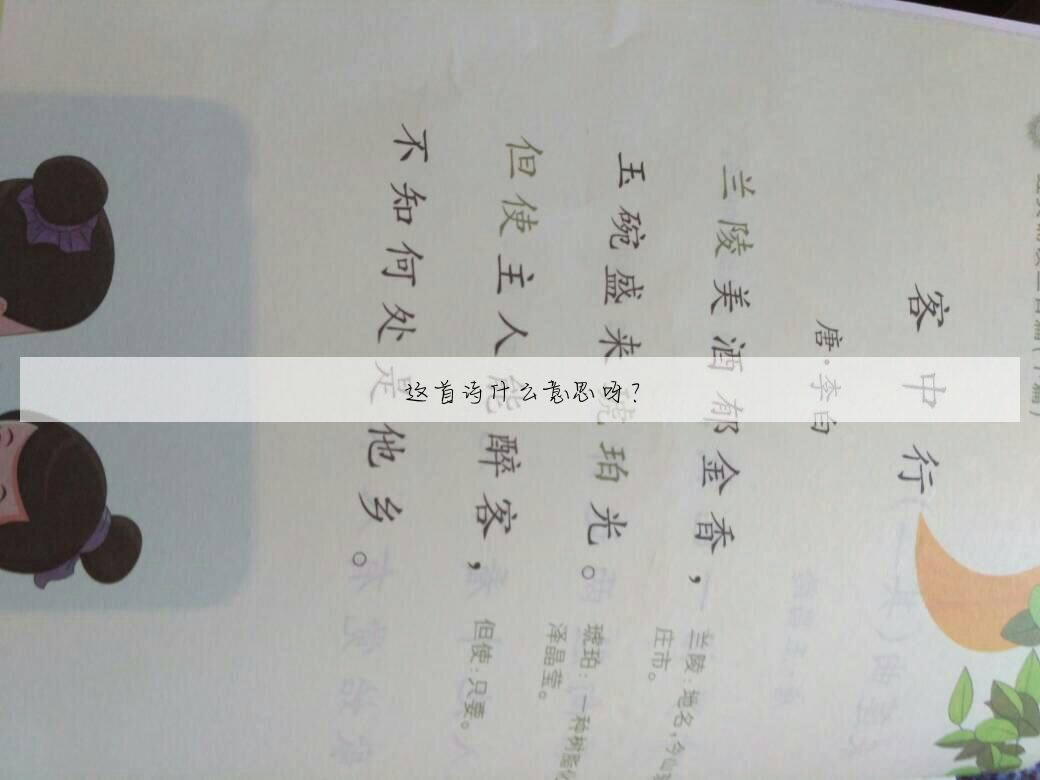 客中行
唐·李白
兰陵美酒郁金香，
玉碗盛来琥珀光。
但使主人能醉客，
不知何处是他乡。
兰陵：地名，今
庄市。
琥珀：一种树脂
泽晶莹。
但使：只要。
这首诗什么意思呀？